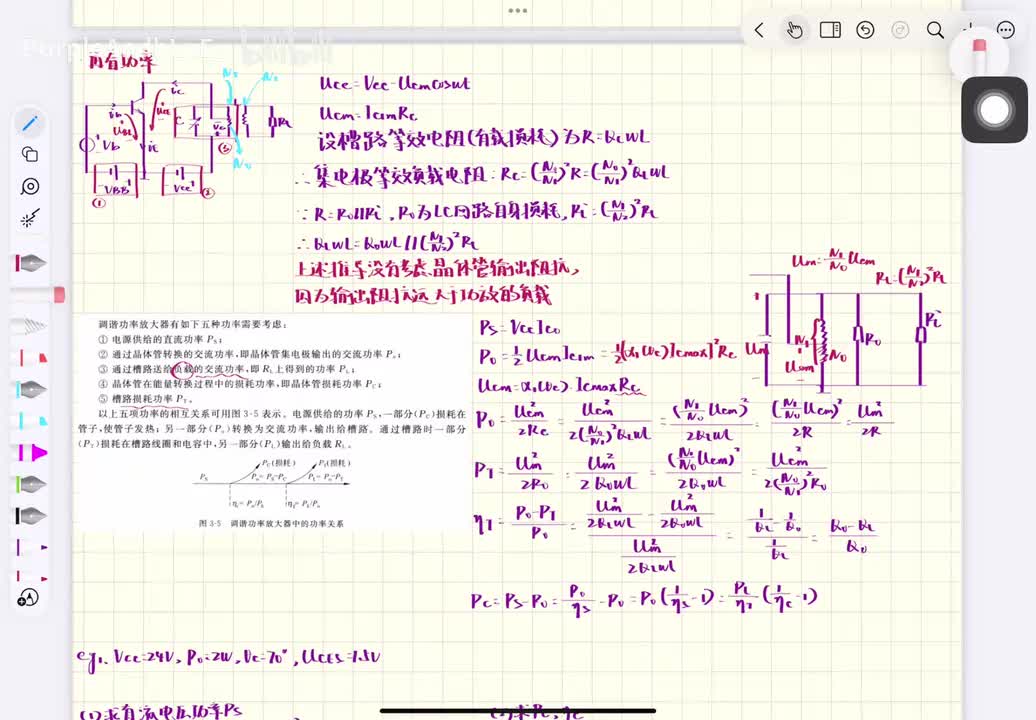 bilibili
再看功率
Uce=Vcc-Ucmcosωt
Ucm=Ic1mRc
设槽路等效电阻(有载损耗)为R=QLωL
∴集电极等效负载电阻:Rc=(N0/N1)²R=(N0/N1)²QLωL
∵R=R0//Ri,R0为LC回路自身损耗,Ri=(N1/N2)²RL
∴QLωL=Q0ωL//(N1/N2)²RL
上述推导没有考虑晶体管输出阻抗,
因为输出阻抗远大于功放的负载
N1
N2
N0
C
RL
Vb
VBB
Vcc
①
②
③
Um=N1/N0 Ucm
Ri=(N1/N2)²RL
Um
N1
N0
Ucm
R0
Ri
调谐功率放大器有如下五种功率需要考虑:
① 电源供给的直流功率 PS;
② 通过晶体管转换的交流功率,即晶体管集电极输出的交流功率 Po;
③ 通过槽路送给负载的交流功率,即 RL 上得到的功率 PL;
④ 晶体管在能量转换过程中的损耗功率,即晶体管损耗功率 PC;
⑤ 槽路损耗功率 PT。
以上五项功率的相互关系可用图 3-5 表示。电源供给的功率 PS,一部分(PC)损耗在
管子,使管子发热;另一部分(Po)转换为交流功率,输出给槽路。通过槽路时一部分
(PT)损耗在槽路线圈和电容中,另一部分(PL)输出给负载 RL。
PC(损耗) PT(损耗)
PS Po=PS-PC PL=Po-PT
ηC=Po/PS ηT=PL/Po
图 3-5 调谐功率放大器中的功率关系
PS=VccIc0
P0=1/2 UcmIc1m=1/2[α1(θc)Icmax]²Rc
Ucm=α1(θc)·IcmaxRc
P0=Ucm²/2Rc=Ucm²/2(N0/N1)²QLωL=(N1/N0 Ucm)²/2QLωL=(N1/N0 Ucm)²/2R=Um²/2R
PT=Um²/2R0=Um²/2Q0ωL=(N1/N0 Ucm)²/2Q0ωL=Ucm²/2(N0/N1)²R0
ηT=P0-PT/P0=Um²/2QLωL-Um²/2Q0ωL/Um²/2QLωL=1/QL-1/Q0/1/QL=Q0-QL/Q0
Pc=PS-P0=P0/ηs-P0=P0(1/ηs-1)=PL/ηT(1/ηc-1)
eg1. Vcc=24V,P0=2W,θc=70°,UCES=1.5V
(1)求直流电压功率PS
(2)求Pc,ηc